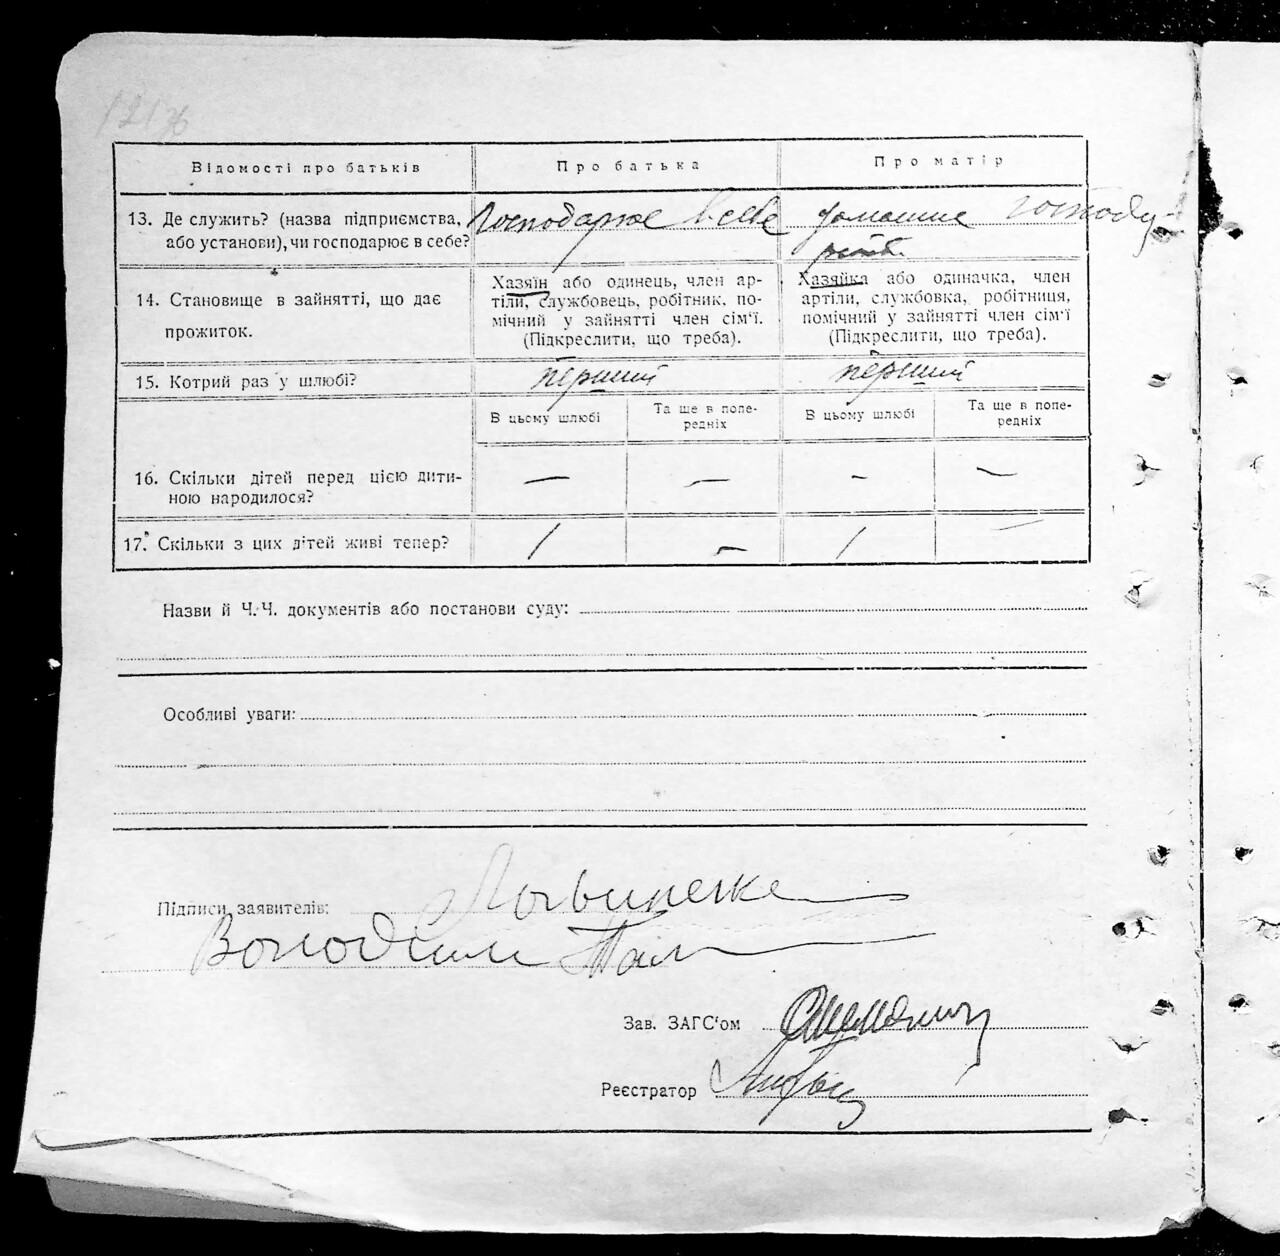 Відомості про батьків Про батька Про матір
13. Де служить? (назва підприємства, або установи), чи господарює в себе? Господарює в себе домашне господар-
14. Становище в зайнятті, що дає прожиток.
Хазяїн або одинець, член ар-
тіли, службовець, робітник, по-
мічний у зайнятті член сім'ї.
(Підкреслити, що треба).
Хазяйка або одиначка, член
артіли, службовка, робітниця,
помічний у зайнятті член сім'ї
(Підкреслити, що треба).
15. Котрий раз у шлюбі? перший перший
В цьому шлюбі Та ще в попе-
редніх В цьому шлюбі Та ще в попе-
редніх
16. Скільки дітей перед цією дити-
ною народилося? — — — —
17. Скільки з цих дітей живі тепер? 1 — 1 —
Назви й Ч.Ч. документів або постанови суду:
Особливі уваги:
Підписи заявителів:
Зав. ЗАГС'ом
Реєстратор